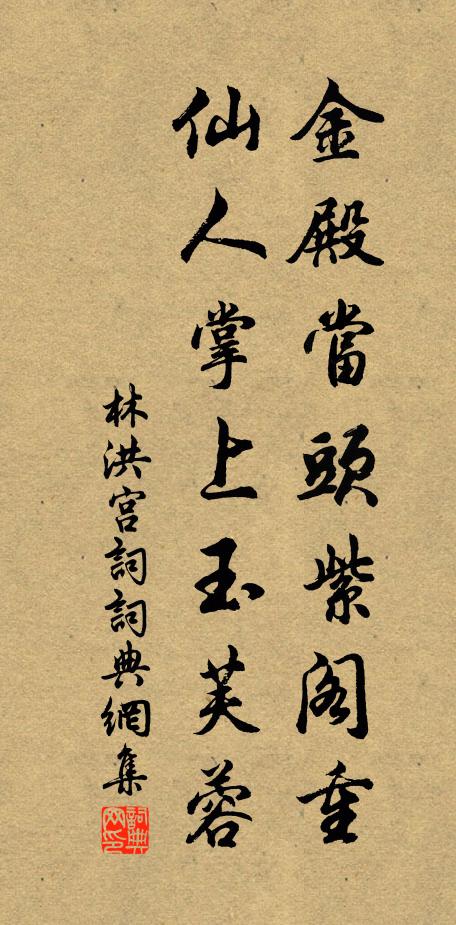 金殿當頭紫阁重
仙人掌上玉芙蓉
林洪宫詞詞典網集
詞典网印